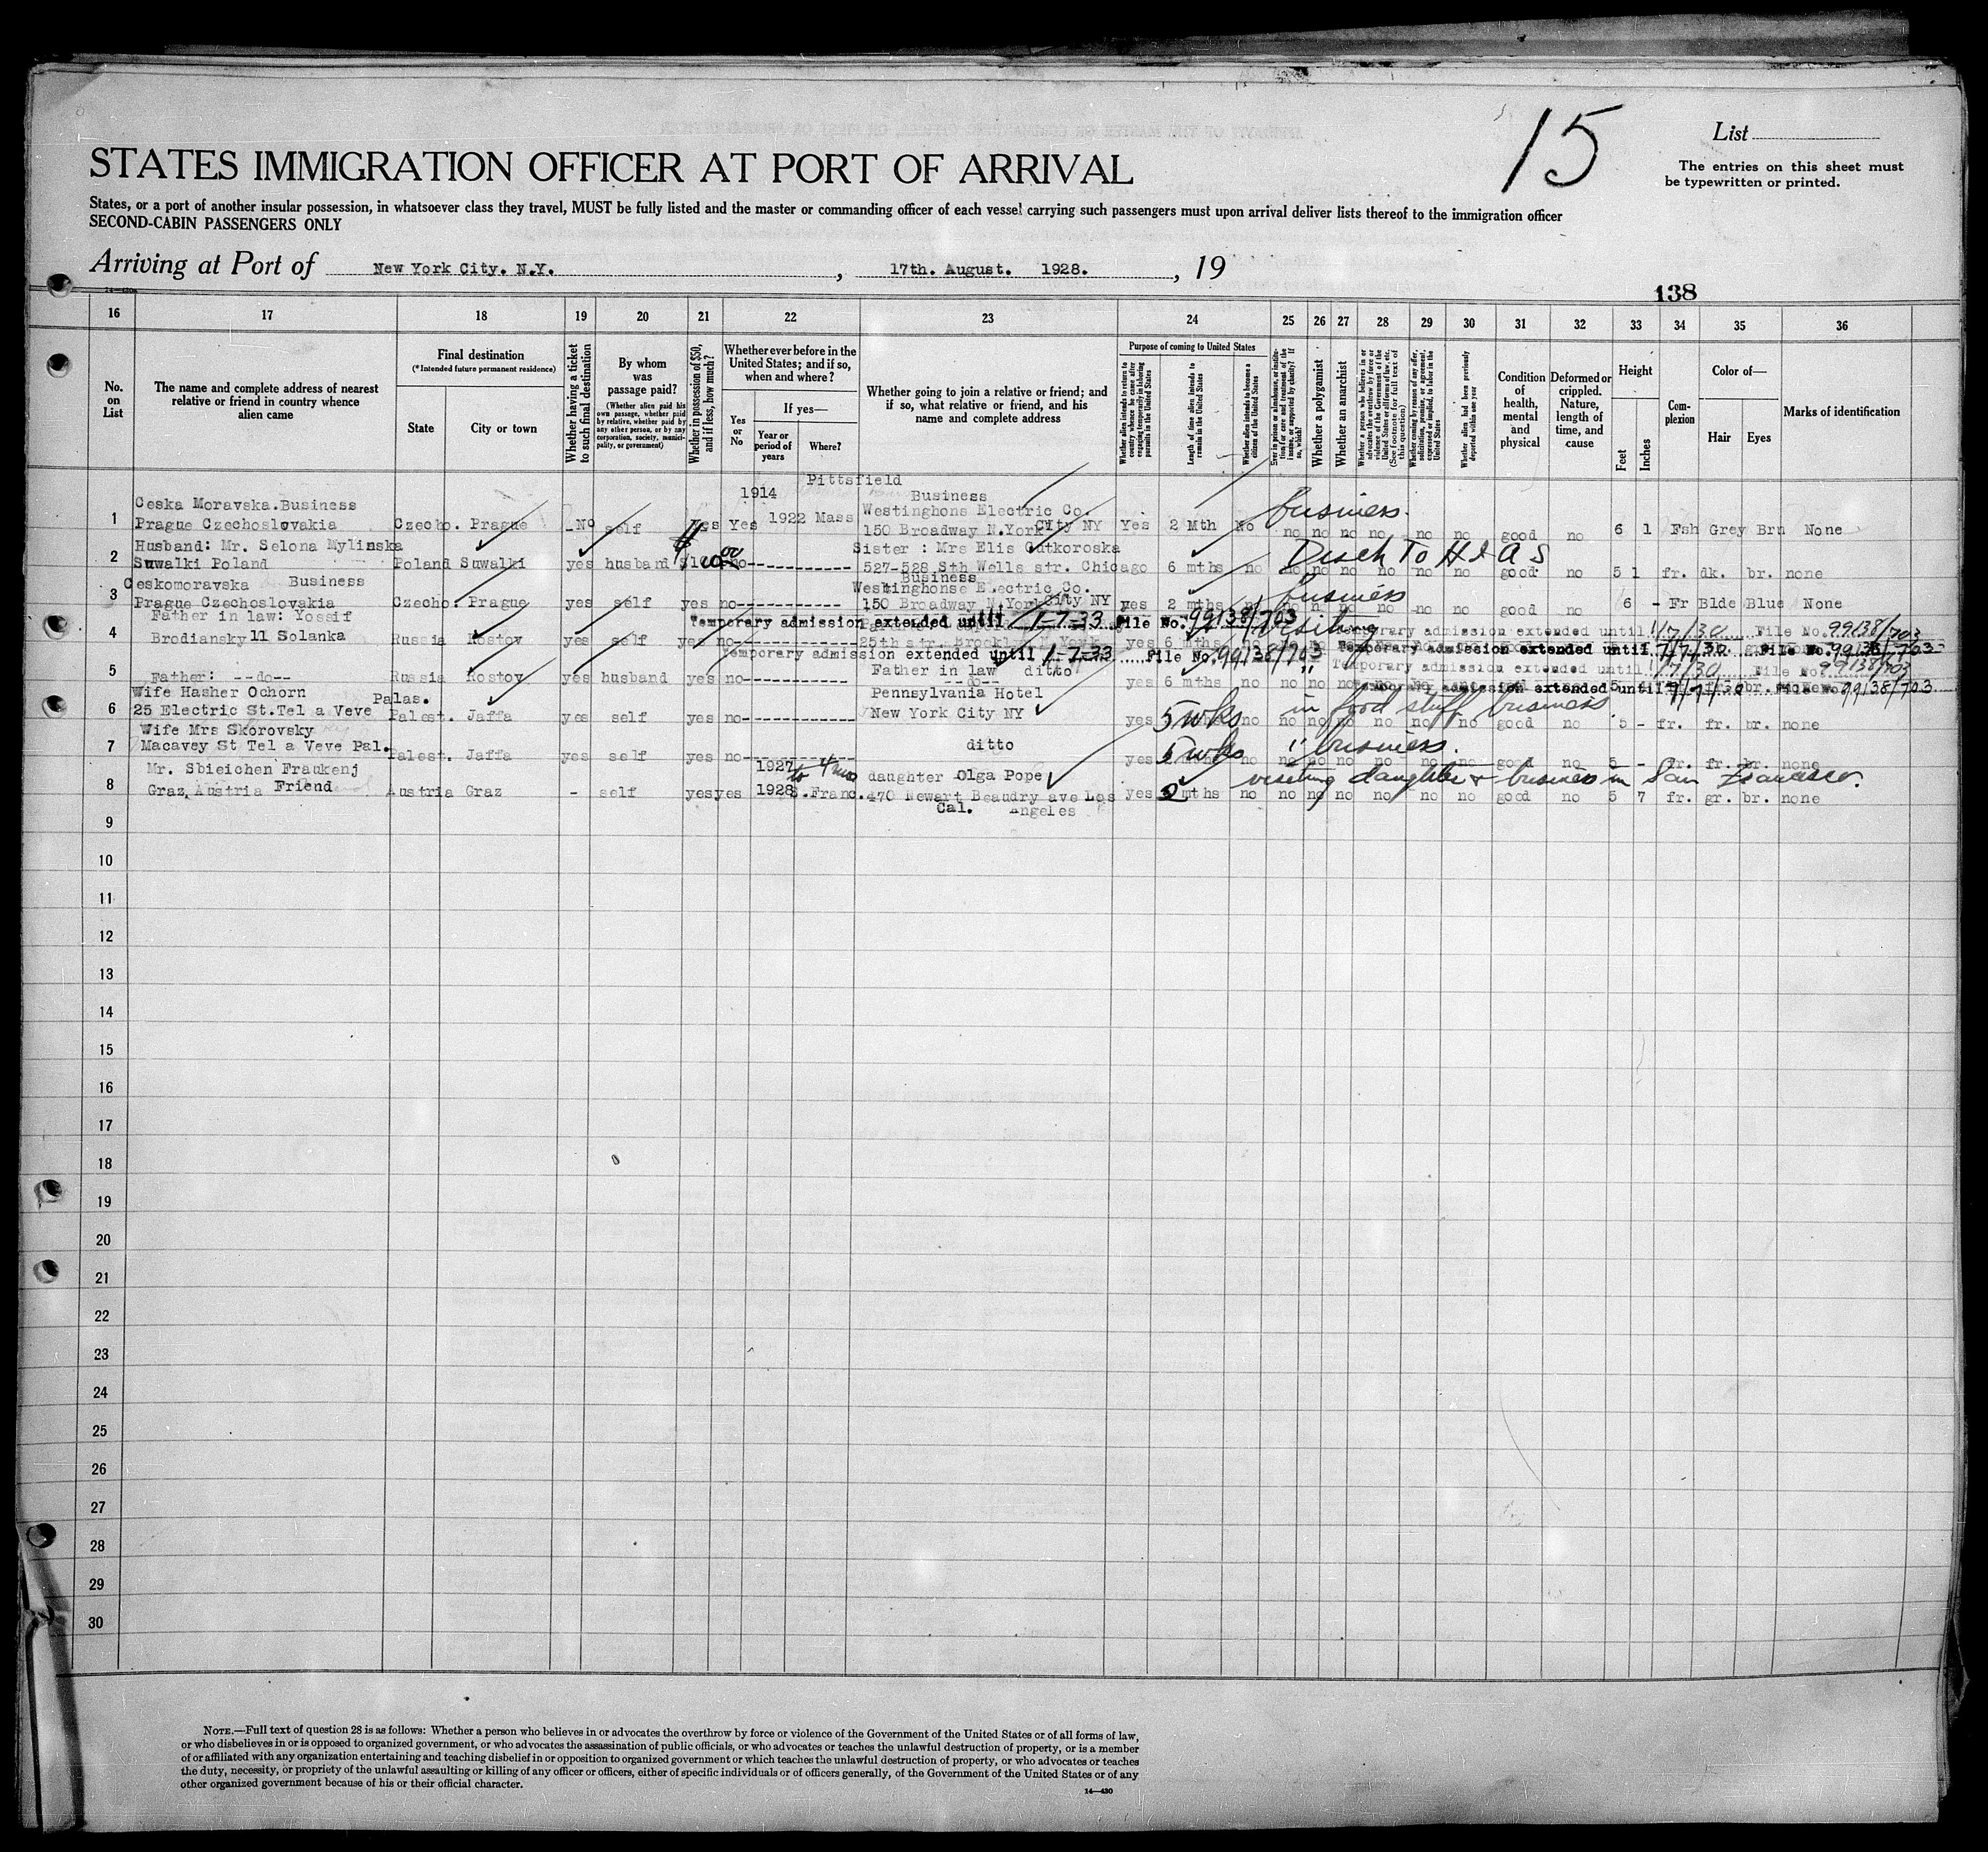 15
List
The entries on this sheet must
be typewritten or printed.
STATES IMMIGRATION OFFICER AT PORT OF ARRIVAL
States, or a port of another insular possession, in whatsoever class they travel, MUST be fully listed and the master or commanding officer of each vessel carrying such passengers must upon arrival deliver lists thereof to the immigration officer
SECOND-CABIN PASSENGERS ONLY
Arriving at Port of New York City. N.Y. , 17th. August. 1928. , 19
138
16 17 18 19 20 21 22 23 24 25 26 27 28 29 30 31 32 33 34 35 36
No. on List
The name and complete address of nearest relative or friend in country whence alien came
Final destination
(*Intended future permanent residence)
State
City or town
Whether having a ticket to such final destination
By whom was passage paid?
(Whether alien paid his own passage, whether paid by relative, whether paid by any other person, or by any corporation, society, municipality, or government)
Whether in possession of $50, and if less, how much?
Whether ever before in the United States; and if so, when and where?
Yes or No
If yes—
Year or period of years
Where?
Whether going to join a relative or friend; and if so, what relative or friend, and his name and complete address
Purpose of coming to United States
Whether alien intends to return to country whence he came after engaging temporarily in laboring pursuits in the United States
Length of time alien intends to remain in the United States
Whether alien intends to become a citizen of the United States
Ever in prison or almshouse, or institution for care and treatment of the insane, or supported by charity? If so, which?
Whether a polygamist
Whether an anarchist
(See footnote for full text of this question)
Whether alien had been previously deported within one year
Condition of health, mental and physical
Deformed or crippled. Nature, length of time, and cause
Height
Feet
Inches
Complexion
Color of—
Hair
Eyes
Marks of identification
Pittsfield
1914 Business
Ceska Moravska.Business Westinghons Electric Co. business.
1 Prague Czechoslovakia Czecho. Prague No self Yes Yes 1922 Mass 150 Broadway N.York City NY Yes 2 Mth No no no no no no no good no 6 1 Fsh Grey Brn None
Husband: Mr. Selona Mylinska Sister : Mrs Elis Gutkoroska Disch To H I A S
2 Suwalki Poland Poland Suwalki yes husband no 527-528 Sth Wells str. Chicago 6 mths no no no no no no no good no 5 1 fr. dk. br. none
Ceskomoravska Business Business
Westinghonse Electric Co. business
3 Prague Czechoslovakia Czecho. Prague yes self yes no 150 Broadway N.York City NY yes 2 mths no no no no good no 6 - Fr Blde Blue None
Father in law: Yossif Temporary admission extended until 1-7-33 File No. 99138/703 visiting Temporary admission extended until 1/7/30 File No. 99138/703
4 Brodiansky 11 Solanka Russia Rostov yes self yes no 25th str. Brooklyn N.York yes 6 mths Temporary admission extended until 7/7/30 File No. 99138/703
Temporary admission extended until 1-7-33 File No. 99138/703 Temporary admission extended until 1/7/30 File No. 99138/703
Father in law ditto "
5 Father: --do-- Russia Rostov yes husband yes no --do-- yes 6 mths no no no no
Temporary admission extended until 7/7/30 File No. 99138/703
Wife Hasher Ochorn Palas. Pennsylvania Hotel in food stuff business
6 25 Electric St.Tel a Veve Palest. Jaffa yes self yes no New York City NY yes 5 wks no no no no no no no good no 5 - fr. fr. br. none
Wife Mrs Skorovsky ditto " business.
7 Macavey St Tel a Veve Pal. Palest. Jaffa yes self yes no yes 5 wks no no no no no no no good no 5 - fr. fr. br. none
Mr. Sbieichen Fraukenj 1927 to 4 mos daughter Olga Pope visiting daughter & business in San Francisco.
8 Graz, Austria Friend Austria Graz - self yes yes 1928 S.Franc. 470 Newart Beaudry ave Los yes 2 mths no no no no no no no good no 5 7 fr. gr. br. none
Cal. Angeles
9
10
11
12
13
14
15
16
17
18
19
20
21
22
23
24
25
26
27
28
29
30
NOTE.—Full text of question 28 is as follows: Whether a person who believes in or advocates the overthrow by force or violence of the Government of the United States or of all forms of law,
or who disbelieves in or is opposed to organized government, or who advocates the assassination of public officials, or who advocates or teaches the unlawful destruction of property, or is a member
of or affiliated with any organization entertaining and teaching disbelief in or opposition to organized government or which teaches the unlawful destruction of property, or who advocates or teaches
the duty, necessity, or propriety of the unlawful assaulting or killing of any officer or officers, either of specific individuals or of officers generally, of the Government of the United States or of any
other organized government because of his or their official character.
14—430